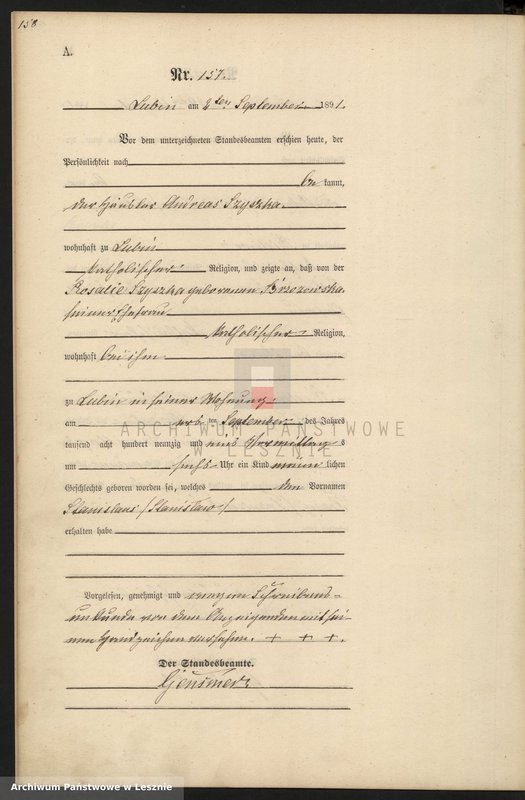 158
A.
Nr. 157.
Lubin am 2ten September 1891.
Vor dem unterzeichneten Standesbeamten erschien heute, der
Persönlichkeit nach
be kannt,
der Häusler Andreas Szyszka
wohnhaft zu Lubin
katholischer Religion, und zeigte an, daß von der
Rosalie Szyszka geborenen Brzezowska
seiner Ehefrau
katholischer Religion,
wohnhaft bei ihm
zu Lubin in seiner Wohnung
am ten September des Jahres
tausend acht hundert neunzig und eins Vormittags
um sechs Uhr ein Kind männ lichen
Geschlechts geboren worden sei, welches den Vornamen
Stanislaus (Stanisław)
erhalten habe
Vorgelesen, genehmigt und wegen Schreibens-
unkunde von dem Anzeigenden mit sei-
nem Handzeichen versehen. + + +.
Der Standesbeamte.
ARCHIWUM PAŃSTWOWE
W LESZNIE
Archiwum Państwowe w Lesznie